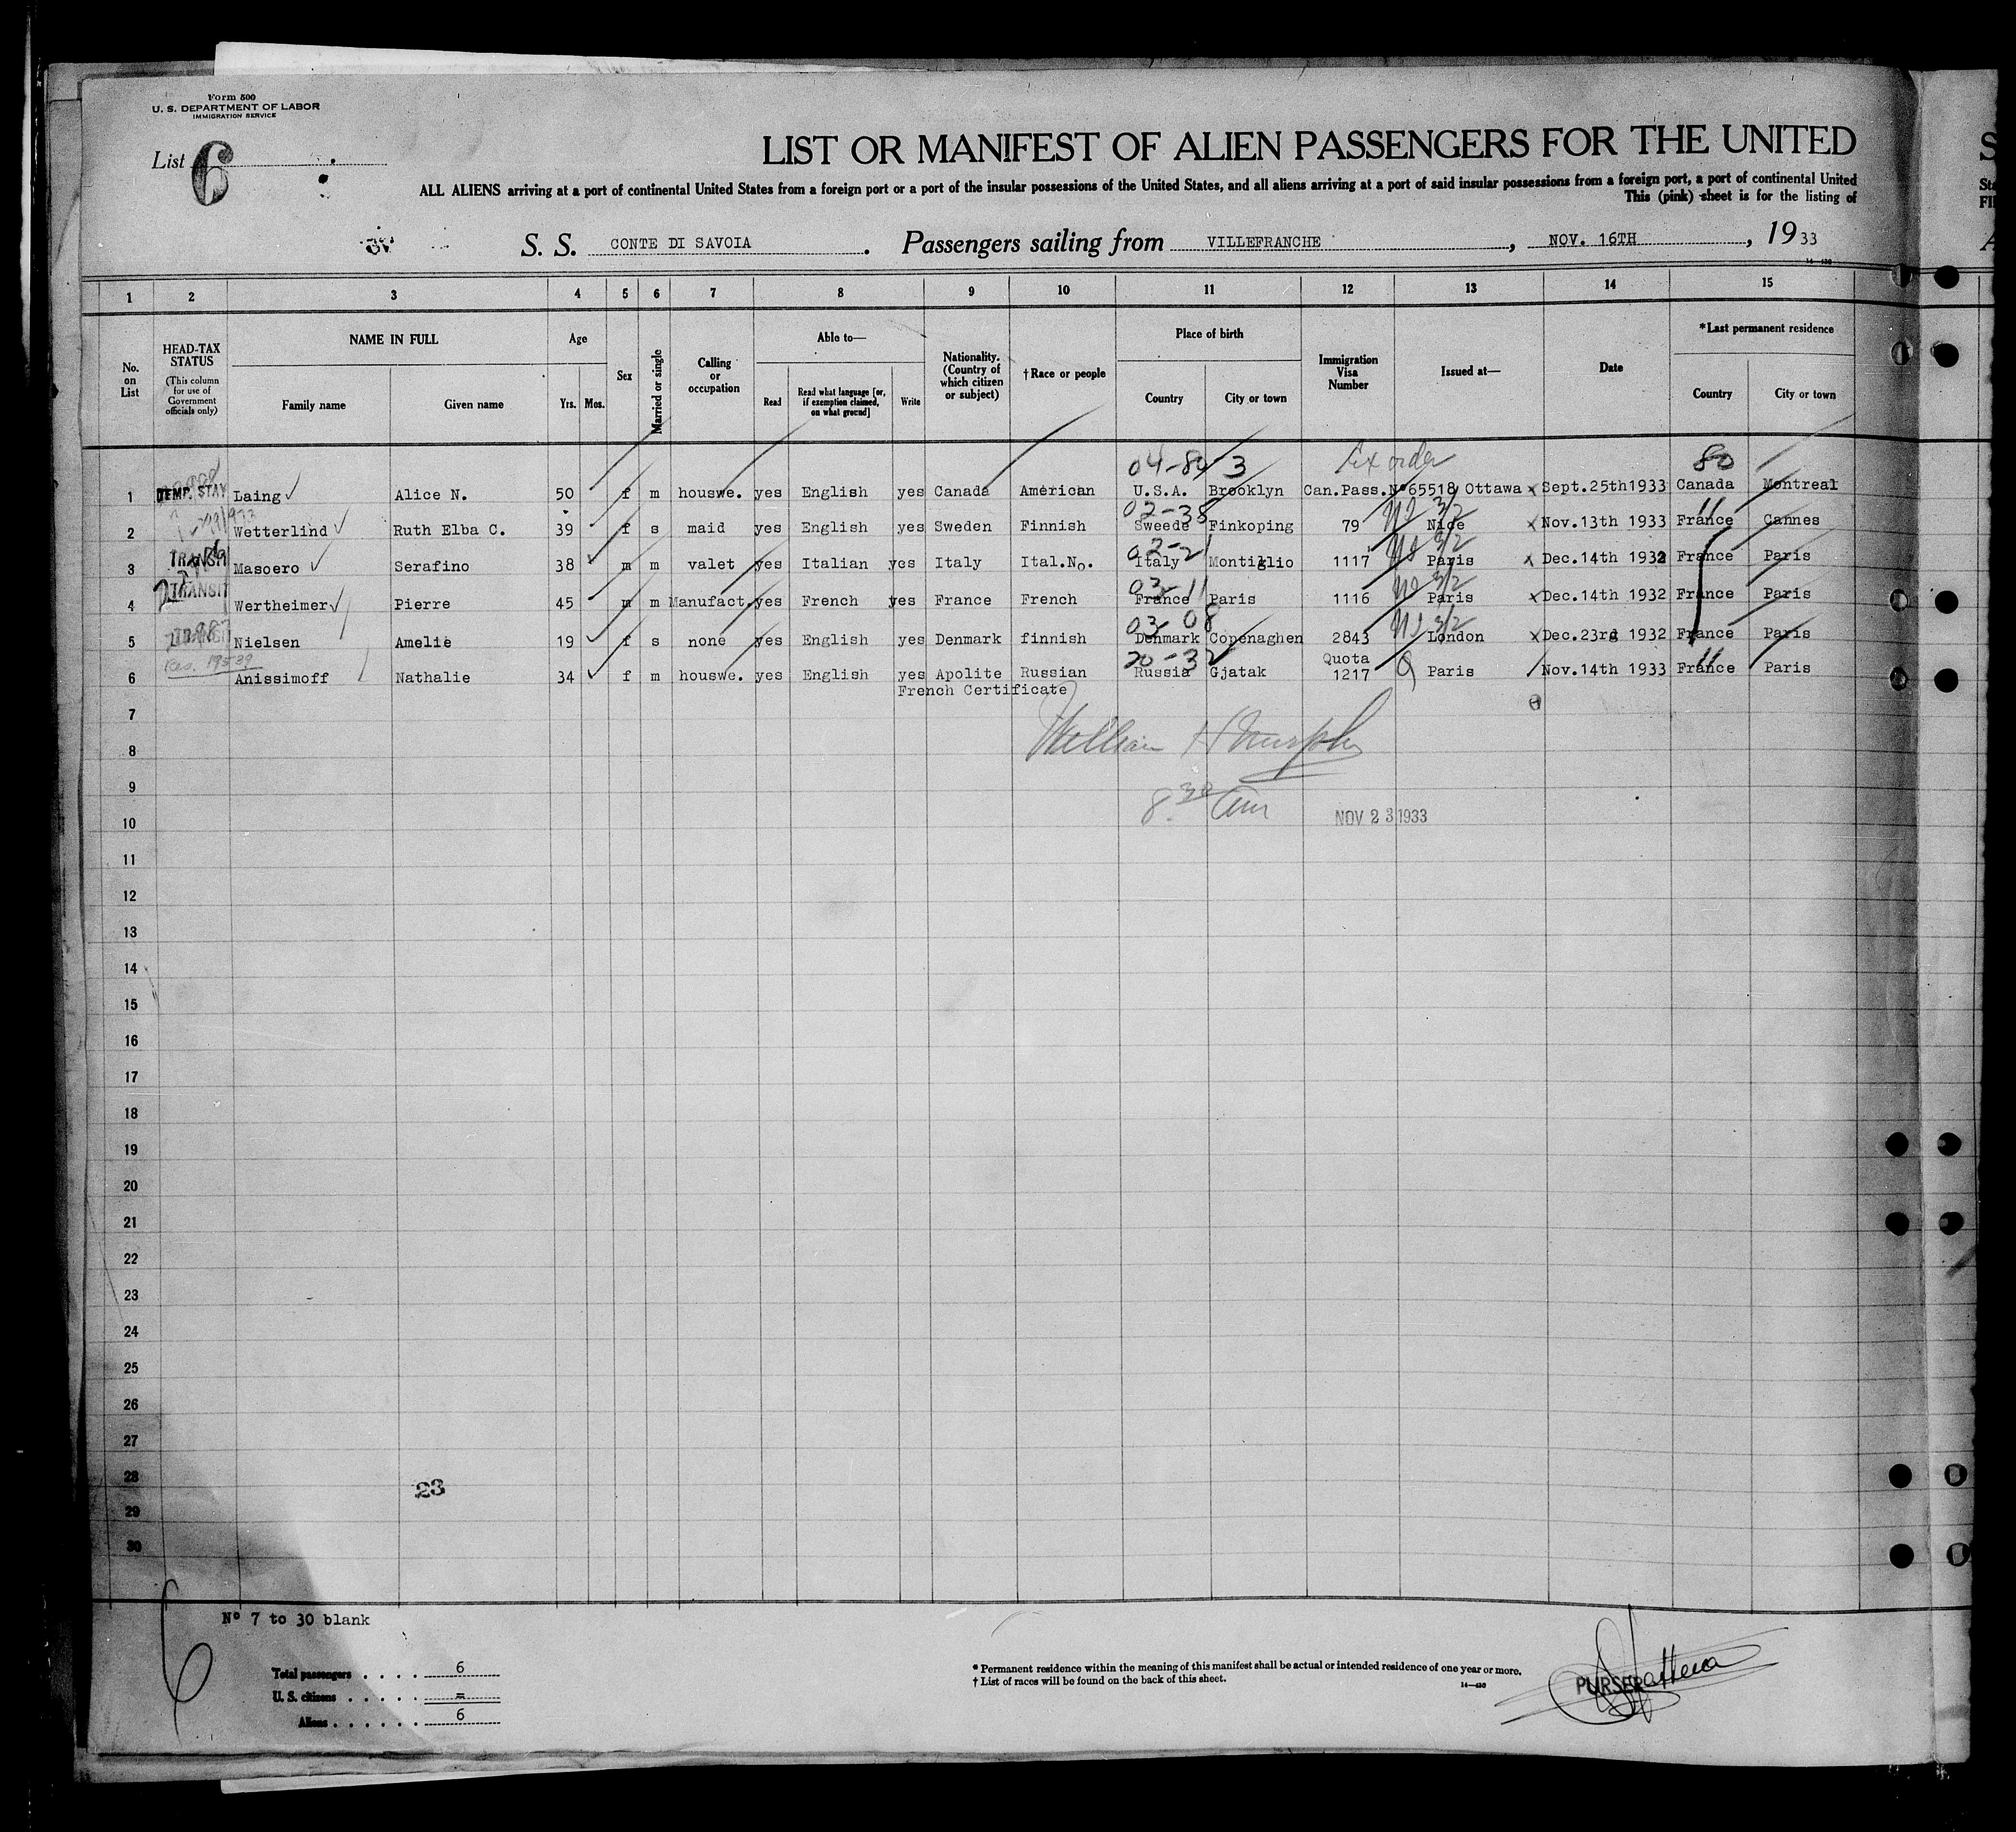 Form 500
U. S. DEPARTMENT OF LABOR
IMMIGRATION SERVICE
List 6
LIST OR MANIFEST OF ALIEN PASSENGERS FOR THE UNITED
ALL ALIENS arriving at a port of continental United States from a foreign port or a port of the insular possessions of the United States, and all aliens arriving at a port of said insular possessions from a foreign port, a port of continental United
This (pink) sheet is for the listing of
S. S. CONTE DI SAVOIA. Passengers sailing from VILLEFRANCHE, NOV. 16TH, 1933
1 2 3 4 5 6 7 8 9 10 11 12 13 14 15
No. on List
HEAD-TAX STATUS (This column for use of Government officials only)
NAME IN FULL
Family name Given name
Age
Yrs. Mos.
Sex
Married or single
Calling or occupation
Able to—
Read Read what language [or, if exemption claimed, on what ground] Write
Nationality. (Country of which citizen or subject)
†Race or people
Place of birth
Country City or town
Immigration Visa Number
Issued at—
Date
*Last permanent residence
Country City or town
04-80 3 Ex order 80
1 TEMP. STAY Laing Alice N. 50 f m houswe. yes English yes Canada American U.S.A. Brooklyn Can.Pass.Nº65518 Ottawa x Sept.25th1933 Canada Montreal
02-38 3/2 11
2 Wetterlind Ruth Elba C. 39 f s maid yes English yes Sweden Finnish Sweede Finkoping 79 Nice x Nov.13th 1933 France Cannes
02-21 3/2
3 TRANSIT Masoero Serafino 38 m m valet yes Italian yes Italy Ital.No. Italy Montiglio 1117 Paris x Dec.14th 1932 France Paris
03-11 3/2
4 TRANSIT Wertheimer Pierre 45 m m Manufact. yes French yes France French France Paris 1116 Paris x Dec.14th 1932 France Paris
03 08 3/2
5 TRANSIT Nielsen Amelie 19 f s none yes English yes Denmark finnish Denmark Copenaghen 2843 London x Dec.23rd 1932 France Paris
20-32 Quota 11
6 Anissimoff Nathalie 34 f m houswe. yes English yes Apolite Russian Russia Gjatak 1217 Paris Nov.14th 1933 France Paris
French Certificate
7
William H Murphy
8
9
8.30 am NOV 23 1933
10
11
12
13
14
15
16
17
18
19
20
21
22
23
24
25
26
27
28
23
29
30
Nº 7 to 30 blank
6
Total passengers . . . . 6
U. S. citizens . . . . . =
Aliens . . . . . . 6
* Permanent residence within the meaning of this manifest shall be actual or intended residence of one year or more.
† List of races will be found on the back of this sheet.
14—430
PURSER